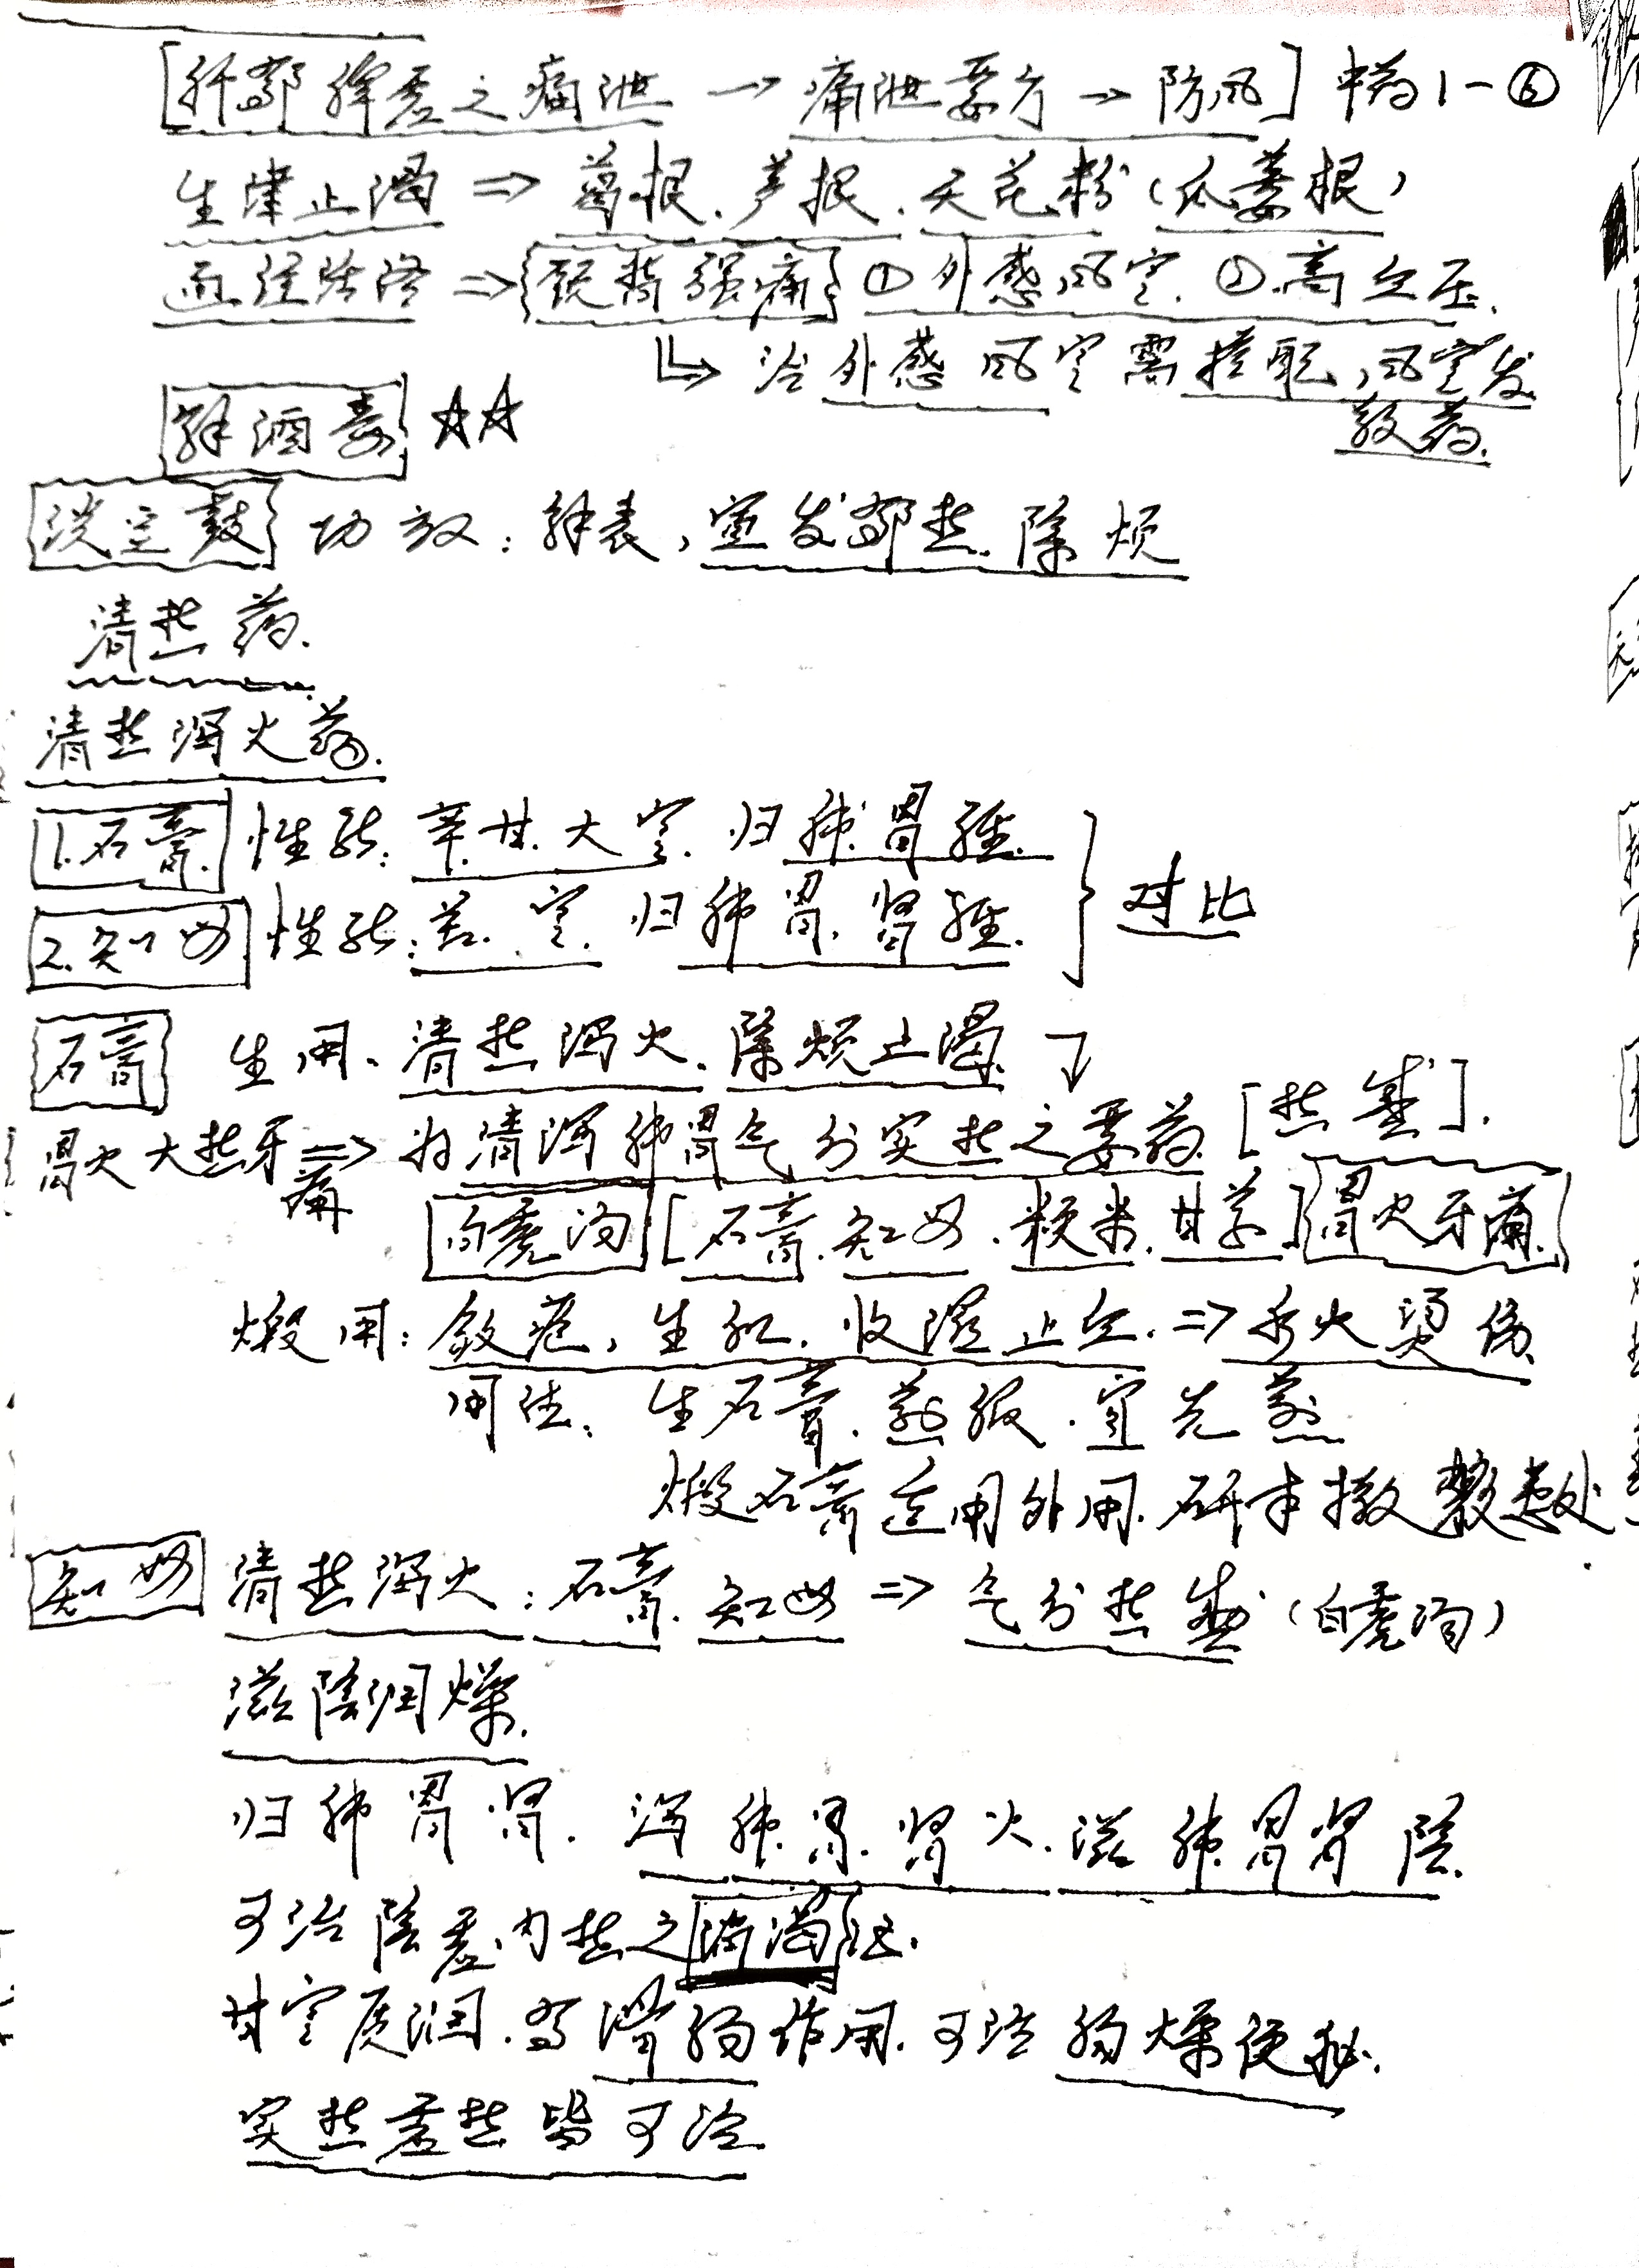 [肝郁脾虚之痛泄 → 痛泄要方 → 防风] 中药1-⑥
生津止渴 ⇒ 葛根、芦根、天花粉(瓜蒌根)
通经活络 ⇒ {颈背强痛} ①外感风寒. ②高血压.
↳ 治外感风寒需搭配风寒发
散药.
解酒毒 ☆☆
淡豆豉 功效: 解表, 宣发郁热. 除烦
清热药.
清热泻火药.
1.石膏 性能: 辛.甘.大寒. 归肺.胃经.
2.知母 性能: 苦.寒. 归肺.胃.肾经. } 对比
石膏 生用、清热泻火. 除烦止渴
胃火大热牙痛 ⇒ 为清泻肺胃气分实热之要药. [热盛].
白虎汤 [石膏.知母.粳米.甘草] 胃火牙痛.
煅用: 敛疮, 生肌. 收湿止血. ⇒ 水火烫伤.
用法: 生石膏. 煎服. 宜先煎
煅石膏适用外用. 研末撒患处
知母 清热泻火: 石膏. 知母 ⇒ 气分热盛(白虎汤)
滋阴润燥.
归肺胃肾. 泻肺.胃.肾火. 滋肺.胃肾阴.
可治阴虚内热之消渴证.
甘寒质润. 有滑肠作用. 可治肠燥便秘.
实热虚热皆可治